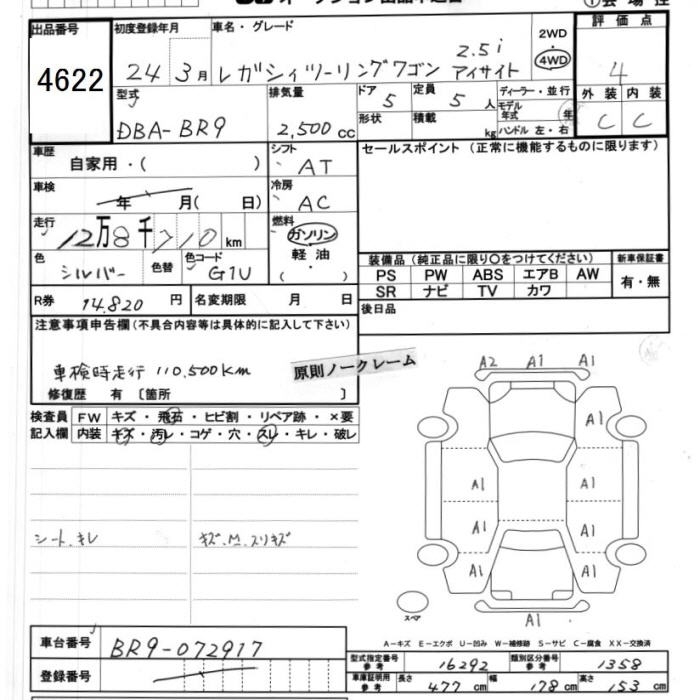 出品番号
4622
初度登録年月
24 3月
車名・グレード
レガシィツーリングワゴン 2.5i アイサイト
2WD
4WD
評価点
4
外装 内装
C C
型式
DBA-BR9
排気量
2,500 cc
ドア 5
定員 5 人
形状
積載 kg
ディーラー・並行
モデル年式 年
ハンドル 左・右
車歴
自家用・( )
シフト
AT
車検
年 月( 日)
冷房
AC
走行
12万8千710km
燃料
ガソリン
軽油
・
( )
色
シルバー
色替
色コード
G1U
R券 14.820 円
名変期限 月 日
セールスポイント (正常に機能するものに限ります)
装備品 (純正品に限り○をつけてください)
新車保証書
PS PW ABS エアB AW
SR ナビ TV カワ
有・無
後日品
注意事項申告欄(不具合内容等は具体的に記入して下さい)
車検時走行 110,500km
原則ノークレーム
修復歴 有 〔箇所 〕
検査員記入欄
FW キズ・飛石・ヒビ割・リペア跡・×要
内装 キズ・汚レ・コゲ・穴・スレ・キレ・破レ
シート、キレ
キズ、M、スリキズ
A2 A1 A1
A1
A1 A1
A1 A1
A1 A1
A1
スペア
A-キズ E-エクボ U-凹み W-補修跡 S-サビ C-腐食 XX-交換済
車台番号
BR9-072917
登録番号
型式指定番号 参考 16292
類別区分番号 参考 1358
車庫証明用 参考 長さ 477 cm 幅 178 cm 高さ 153 cm